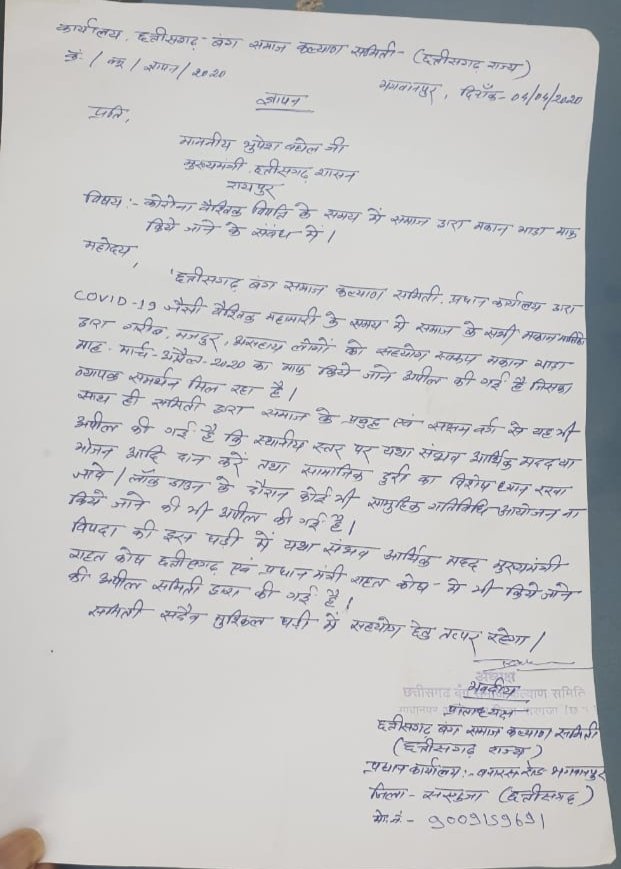 कार्यालय, छत्तीसगढ़- बंग समाज कल्याण समिति- (छत्तीसगढ़ राज्य)
क्रं./ /ज्ञापन/2020
भगवानपुर, दिनाँक- 04/04/2020
ज्ञापन
प्रति,
माननीय भुपेश बघेल जी
मुख्यमंत्री, छत्तीसगढ़ शासन
रायपुर
विषय :- कोरोना वैश्विक विपत्ति के समय में समाज द्वारा मकान भाडा माफ
किये जाने के संबंध में।
महोदय,
छत्तीसगढ़ बंग समाज कल्याण समिति, प्रधान कार्यालय द्वारा
COVID-19 जैसी वैश्विक महामारी के समय में समाज के सभी मकान मालिको
द्वारा गरीब, मजदुर, असहाय लोगों को सहयोग स्वरूप मकान भाडा
माह- मार्च- अप्रैल- 2020 का माफ किये जाने अपील की गई है जिसका
व्यापक समर्थन मिल रहा है।
साथ ही समिति द्वारा समाज के प्रबुद्ध एवं सक्षम वर्ग से यह भी
अपील की गई है कि स्थानीय स्तर पर यथा संभव आर्थिक मदद वा
भोजन आदि दान करें तथा सामाजिक दुरी का विशेष ध्यान रखा
जावे। लॉक डाउन के दौरान कोई भी सामुहिक गतिविधि आयोजन ना
किये जाने की भी अपील की गई है।
विपदा की इस घड़ी में यथा संभव आर्थिक मदद मुख्यमंत्री
राहत कोष छत्तीसगढ़ एवं प्रधान मंत्री राहत कोष- में भी किये जाने
की अपील समिति द्वारा की गई है।
समिति सदैव मुश्किल घड़ी में सहयोग हेतु तत्पर रहेगा।
अध्यक्ष
छत्तीसगढ बंग कल्याण समिति
भवदीय
प्रांताध्यक्ष
छत्तीसगढ़ बंग समाज कल्याण समिति
(छत्तीसगढ़ राज्य)
प्रधान कार्यालय:- बनारस रोड भगवानपुर
जिला- सरगुजा (छत्तीसगढ़)
मो.नं.- 9009159691